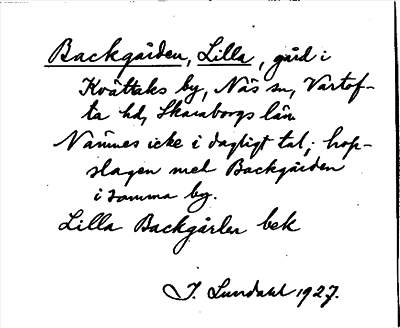 Backgården, Lilla, gård i
Kvättaks by, Näs sn, Vartof-
ta hd, Skaraborgs län.
Nämnes icke i dagligt tal; hop-
slagen med Backgården
i samma by.
Lilla Backgården bek
I. Lundahl 1927.